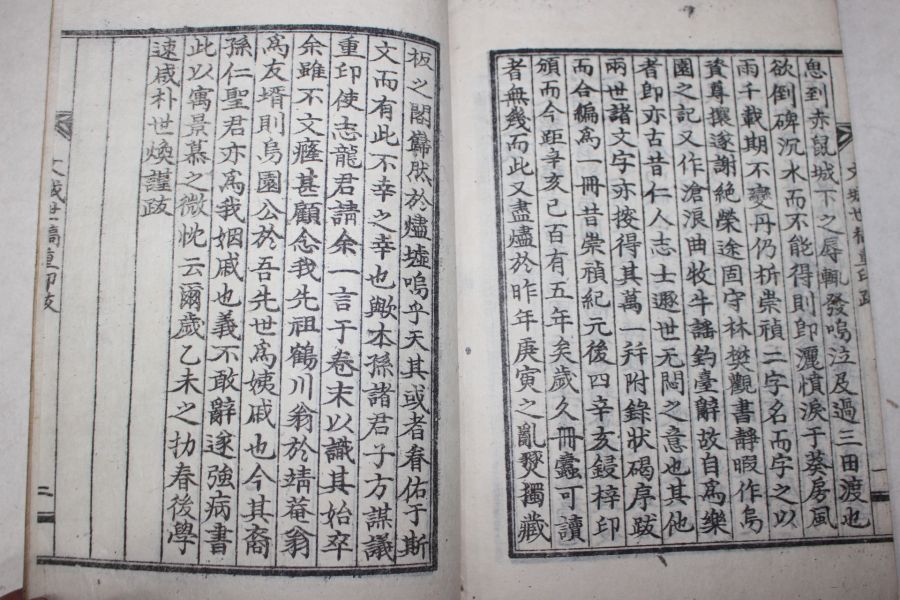 文城世稿重印跋
一
息到赤鼠城下之辱輒發嗚泣及過三田渡也
欲倒碑沉水而不能得則卽灑憤淚于葵房風
雨千載期不變丹仍析崇禎二字名而字之以
資尊攘遂謝絕榮途固守林樊觀書靜暇作烏
園之記又作滄浪曲牧牛謠釣臺辭故自爲樂
者卽亦古昔仁人志士遯世无悶之意也其他
兩世諸文字亦搜得其萬一幷附錄狀碣序跋
而合編爲一冊昔崇禎紀元後四辛亥鋟梓印
頒而今距辛亥已百有五年矣歲久冊蠹可讀
者無幾而此又盡燼於昨年庚寅之亂獨藏
板之閣巋然於燼墟嗚乎天其或者眷佑于斯
文而有此不幸之幸也歟本孫諸君子方謀議
重印使志龍君請余一言于卷末以識其始卒
余雖不文癃甚顧念我先祖鶴川翁於靖菴翁
爲友壻則烏園公於吾先世爲姨戚也今其裔
孫仁聖君亦爲我姻戚也義不敢辭遂強病書
此以寓景慕之微忱云爾歲乙未之春後學
速戚朴世煥謹跋
文城世稿重印跋
二